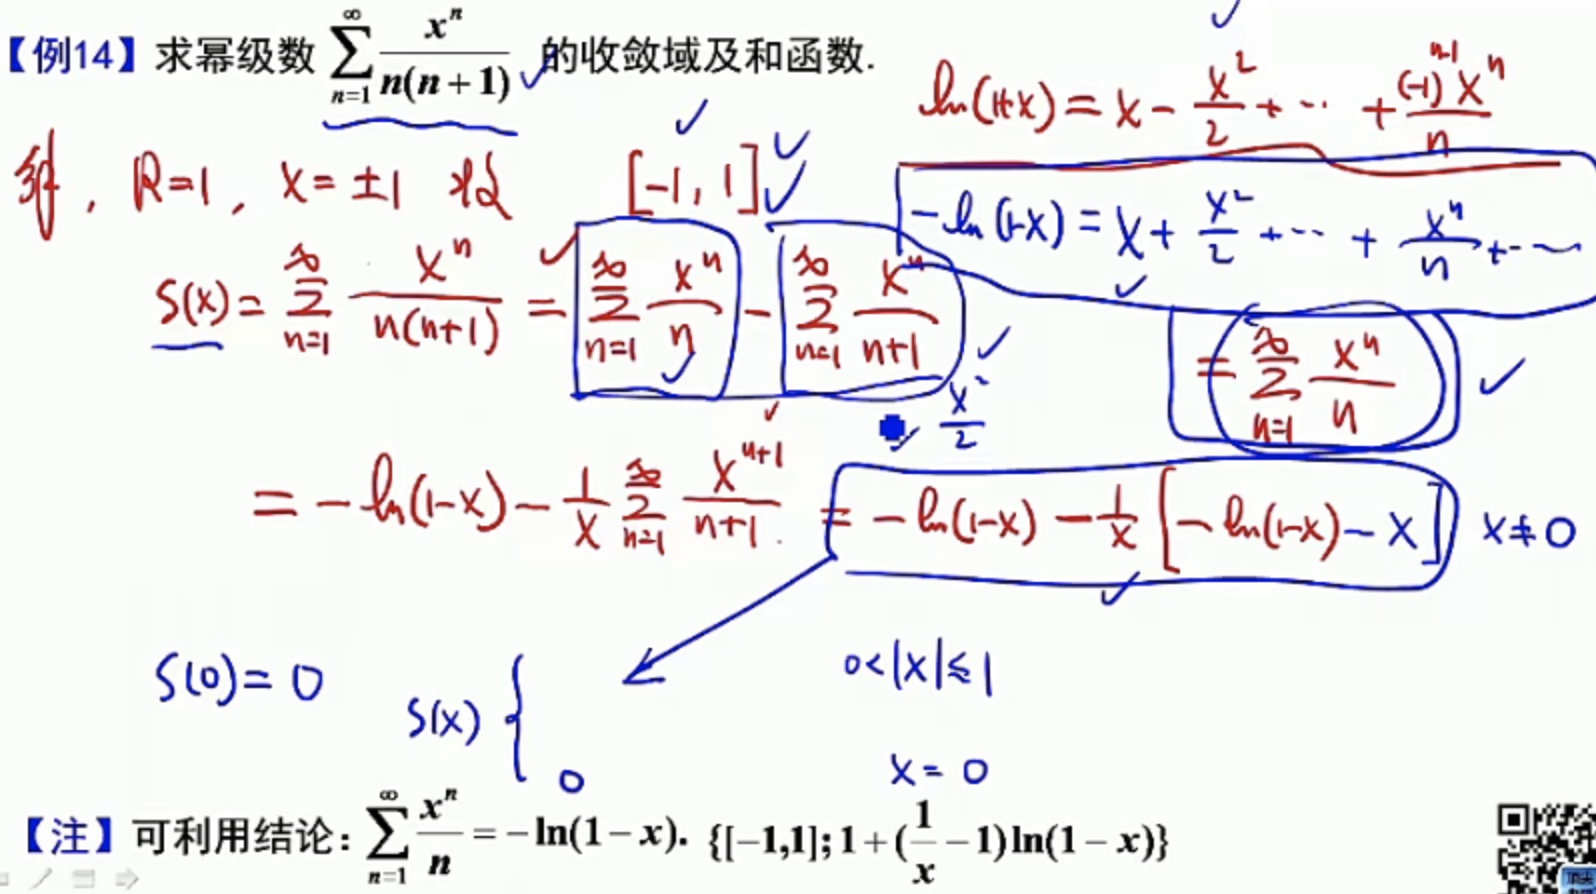 【例14】求幂级数 \sum_{n=1}^{\infty} \frac{x^n}{n(n+1)} 的收敛域及和函数.
ln(1+x) = x - \frac{x^2}{2} + ⋯ + \frac{(-1)^{n-1} x^n}{n}
解, R=1, x=±1 [-1, 1]
-ln(1-x) = x + \frac{x^2}{2} + ⋯ + \frac{x^n}{n} + ⋯
S(x) = \sum_{n=1}^{\infty} \frac{x^n}{n(n+1)} = \sum_{n=1}^{\infty} \frac{x^n}{n} - \sum_{n=1}^{\infty} \frac{x^n}{n+1}
= \sum_{n=1}^{\infty} \frac{x^n}{n}
\frac{x^2}{2}
= -ln(1-x) - \frac{1}{x} \sum_{n=1}^{\infty} \frac{x^{n+1}}{n+1} = -ln(1-x) - \frac{1}{x} [-ln(1-x) - x] x≠0
S(0) = 0 S(x) { 0<|x|≤1
0 x = 0
【注】可利用结论: \sum_{n=1}^{\infty} \frac{x^n}{n} = -ln(1-x). {[-1,1]; 1+(\frac{1}{x}-1)ln(1-x)}